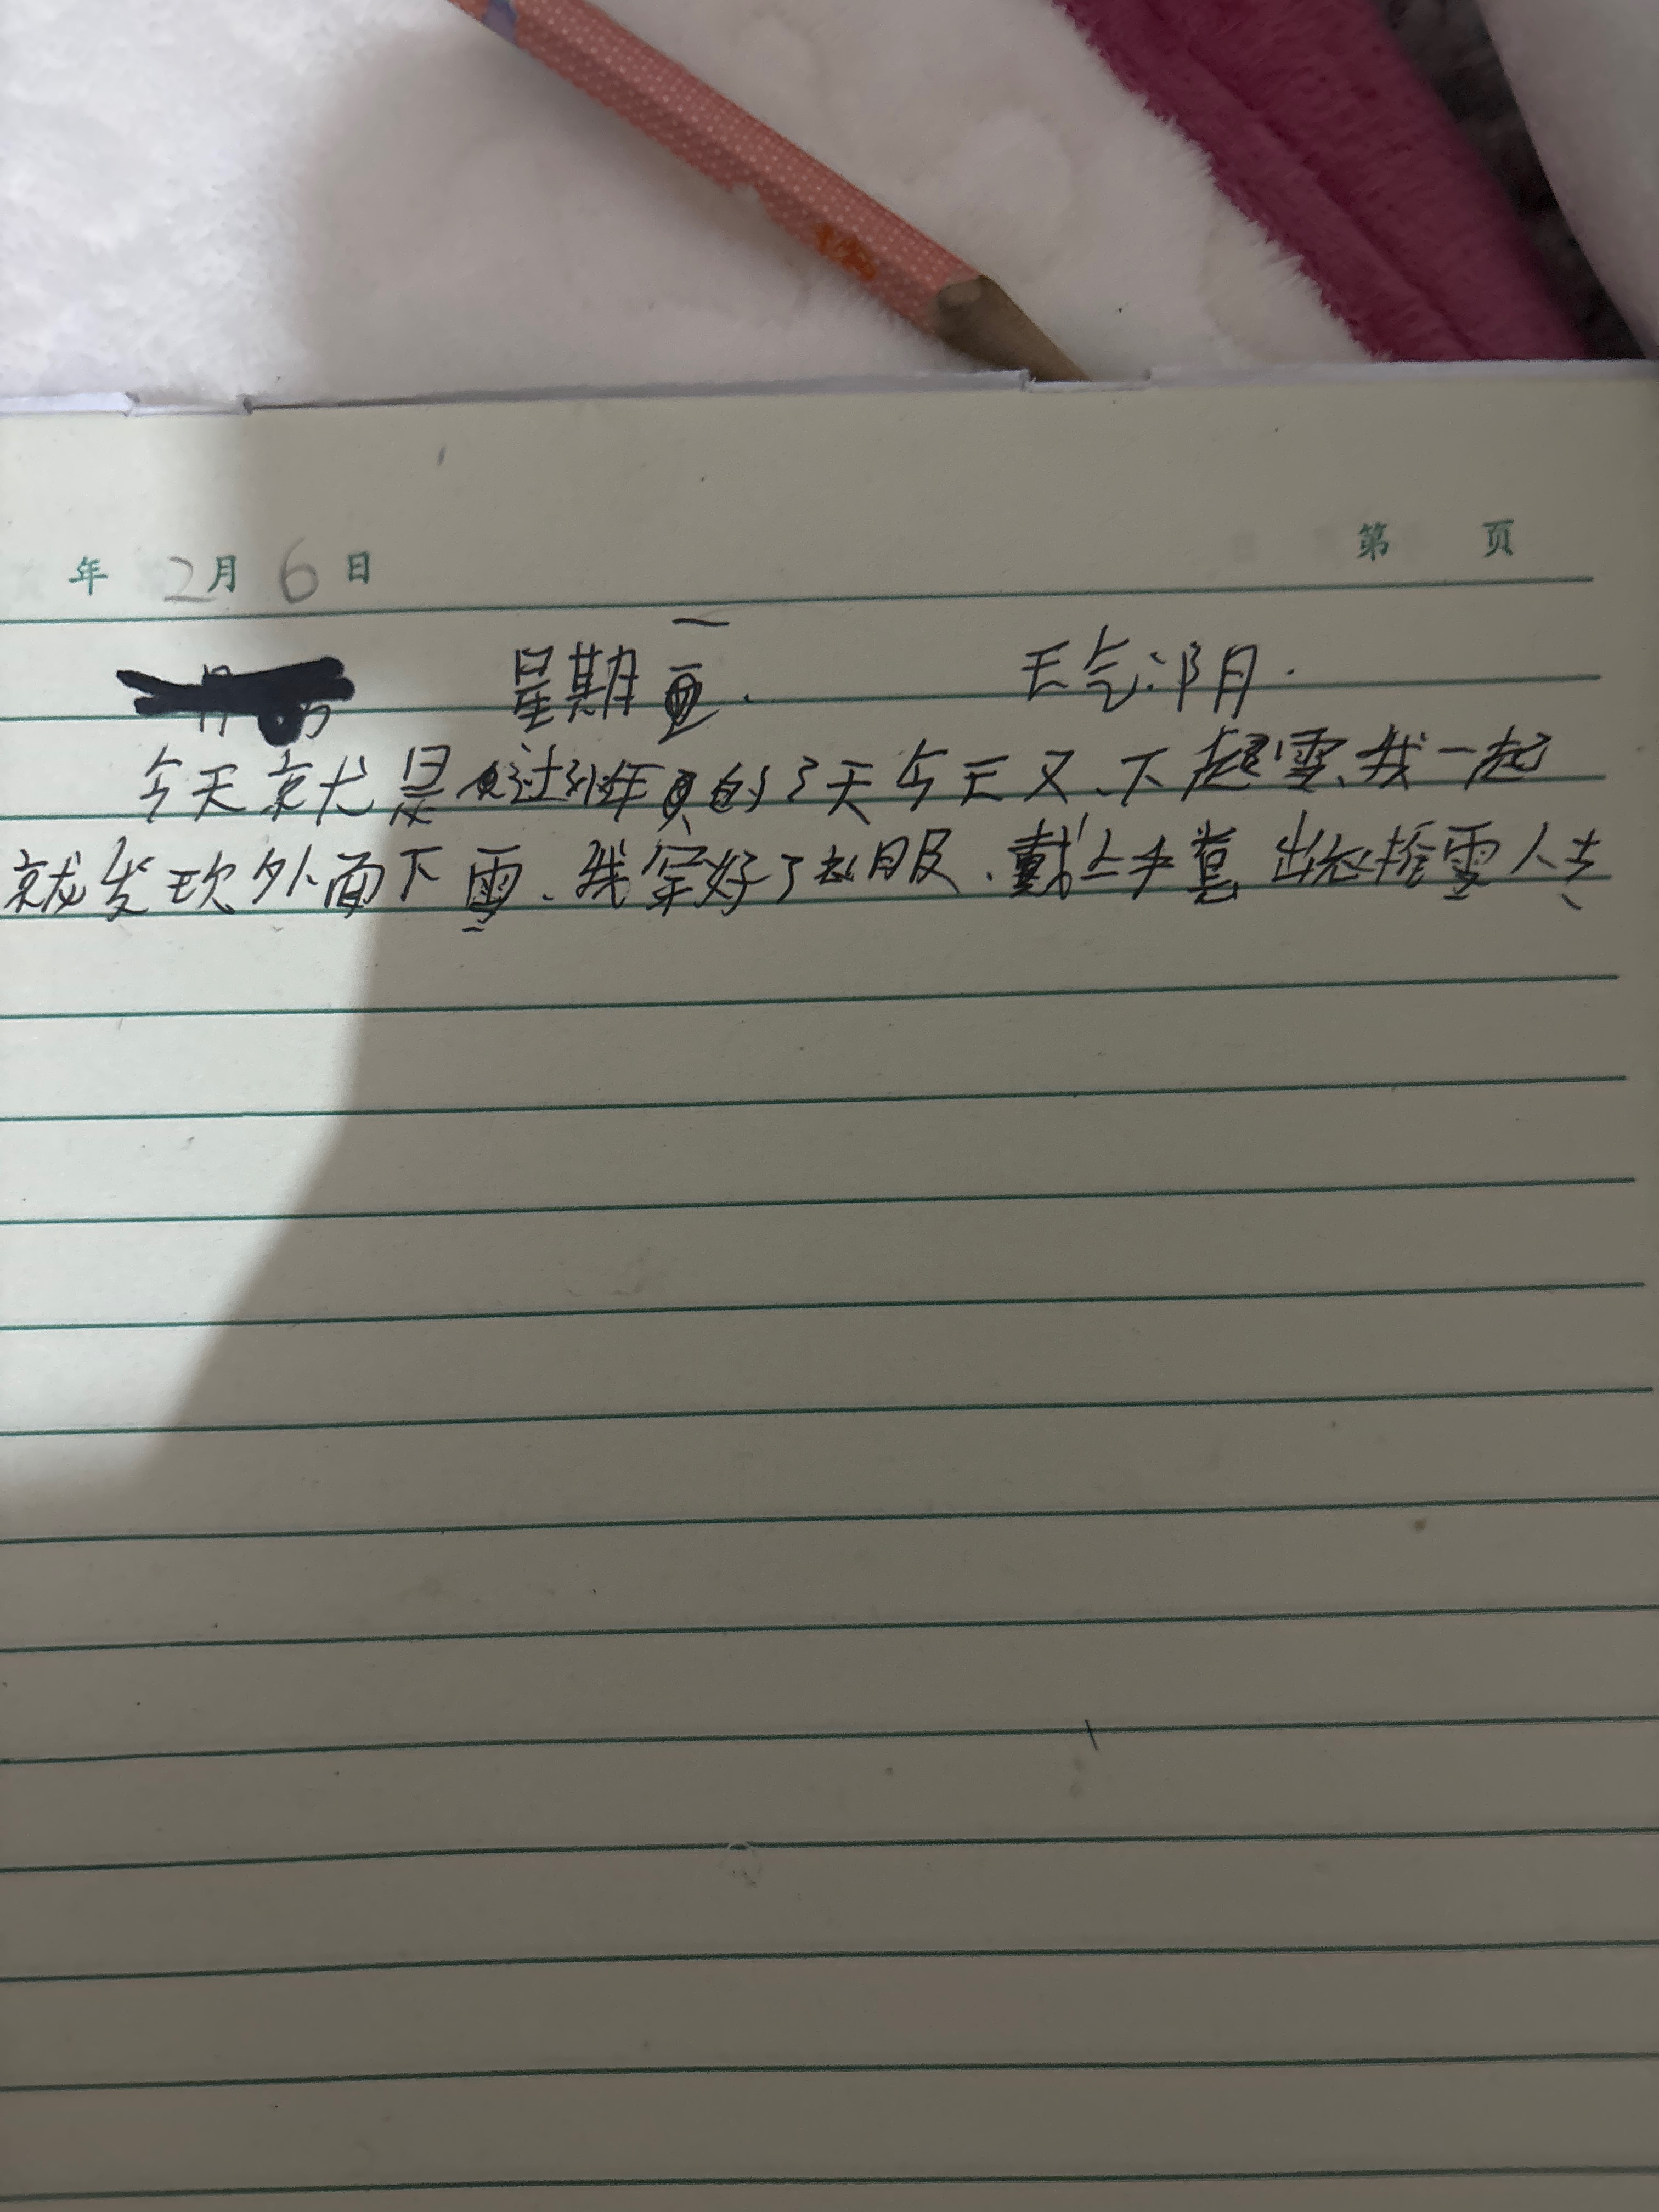 年 2月 6日 第 页
星期一. 天气:阴.
今天就是过年的3天今天又、下起雪、我一起
就发现外面下雪、我穿好了衣服、戴上手套 出去推雪人去、